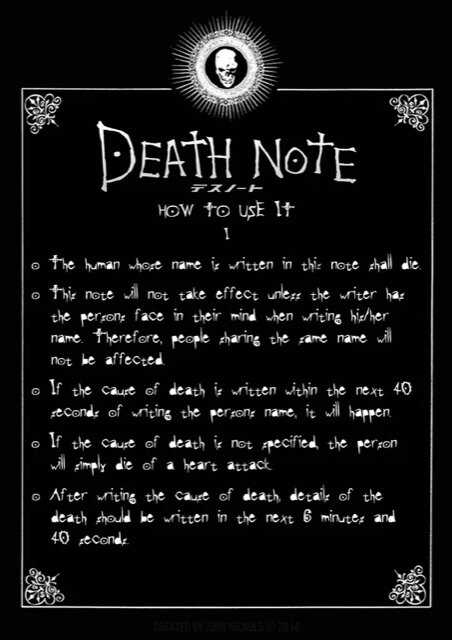 DEATH NOTE
デスノート
HOW TO USE IT
1
The human whose name is written in this note shall die.
This note will not take effect unless the writer has
the persons face in their mind when writing his/her
name. Therefore, people sharing the same name will
not be affected.
If the cause of death is written within the next 40
seconds of writing the persons name, it will happen.
If the cause of death is not specified, the person
will simply die of a heart attack.
After writing the cause of death, details of the
death should be written in the next 6 minutes and
40 seconds.
CREATED BY JOHN NICHOLS © 2014